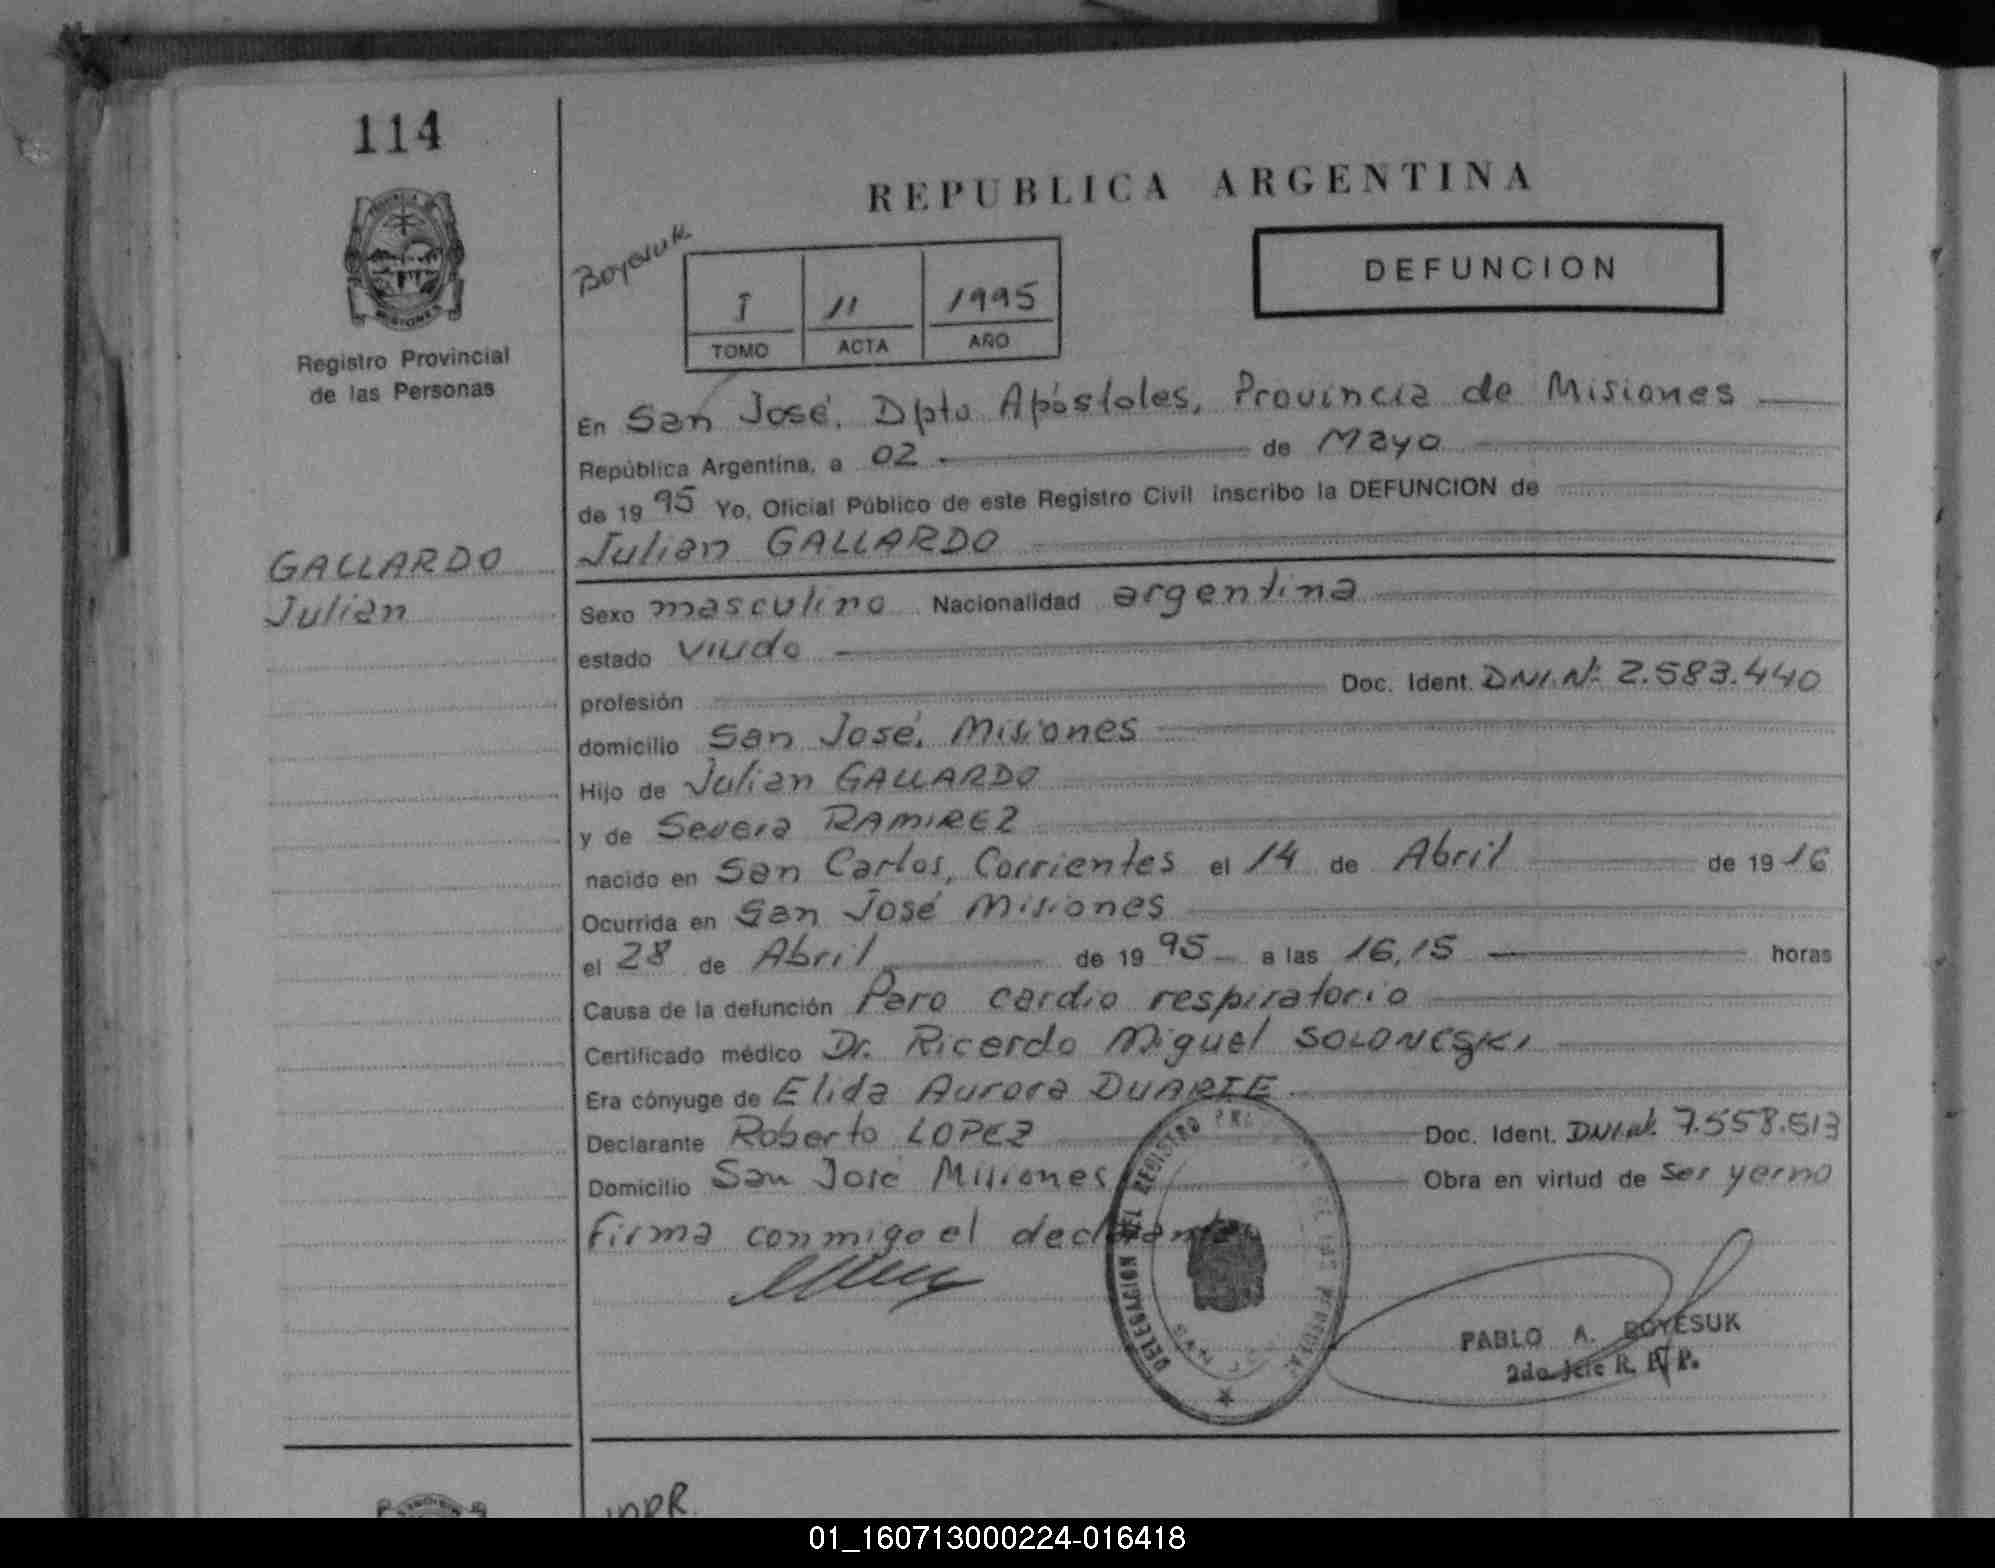 114
REPUBLICA ARGENTINA
Boyesuk
I 11 1995
TOMO ACTA AÑO
DEFUNCION
MISIONES
Registro Provincial
de las Personas
En San José, Dpto Apóstoles, Provincia de Misiones
República Argentina, a 02 de Mayo
de 1995 Yo, Oficial Público de este Registro Civil inscribo la DEFUNCION de
Julian GALLARDO
GALLARDO
Julian
Sexo masculino Nacionalidad argentina
estado viudo
profesión Doc. Ident. DNI.Nº 2.583.440
domicilio San José, Misiones
Hijo de Julian GALLARDO
y de Severa RAMIREZ
nacido en San Carlos, Corrientes el 14 de Abril de 1916
Ocurrida en San José Misiones
el 28 de Abril de 1995 a las 16,15 horas
Causa de la defunción Paro cardio respiratorio
Certificado médico Dr. Ricardo Miguel SOLONESKI
Era cónyuge de Elida Aurora DUARTE
Declarante Roberto LOPEZ Doc. Ident. DNI.Nº 7.558.513
Domicilio San José Misiones Obra en virtud de ser yerno
firma conmigo el declarante
DELEGACION DEL REGISTRO
PABLO A. BOYESUK
2do Jefe R. P. P.
01_160713000224-016418